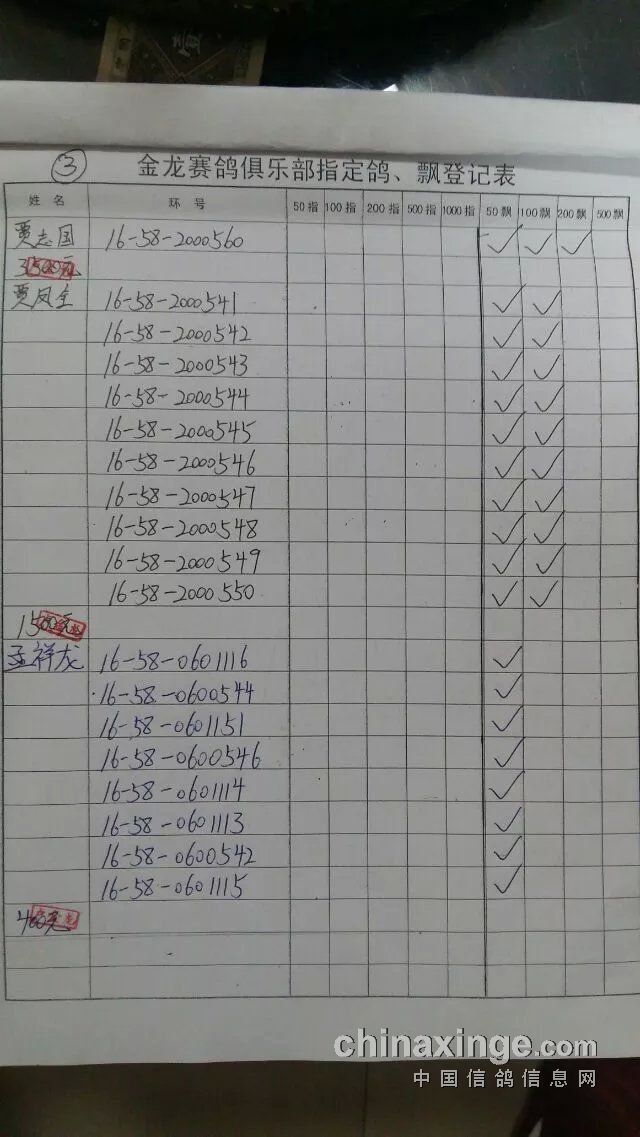 壹
③ 金龙赛鸽俱乐部指定鸽、飘登记表
姓名 环号 50指 100指 200指 500指 1000指 50飘 100飘 200飘 500飘
贾志国 16-58-2000560 ✓ ✓ ✓
350元
贾凤全 16-58-2000541 ✓ ✓
16-58-2000542 ✓ ✓
16-58-2000543 ✓ ✓
16-58-2000544 ✓ ✓
16-58-2000545 ✓ ✓
16-58-2000546 ✓ ✓
16-58-2000547 ✓ ✓
16-58-2000548 ✓ ✓
16-58-2000549 ✓ ✓
16-58-2000550 ✓ ✓
1500元
孟祥龙 16-58-0601116 ✓
16-58-0600544 ✓
16-58-0601151 ✓
16-58-0600546 ✓
16-58-0601114 ✓
16-58-0601113 ✓
16-58-0600542 ✓
16-58-0601115 ✓
400元
chinaxinge.com
中国信鸽信息网